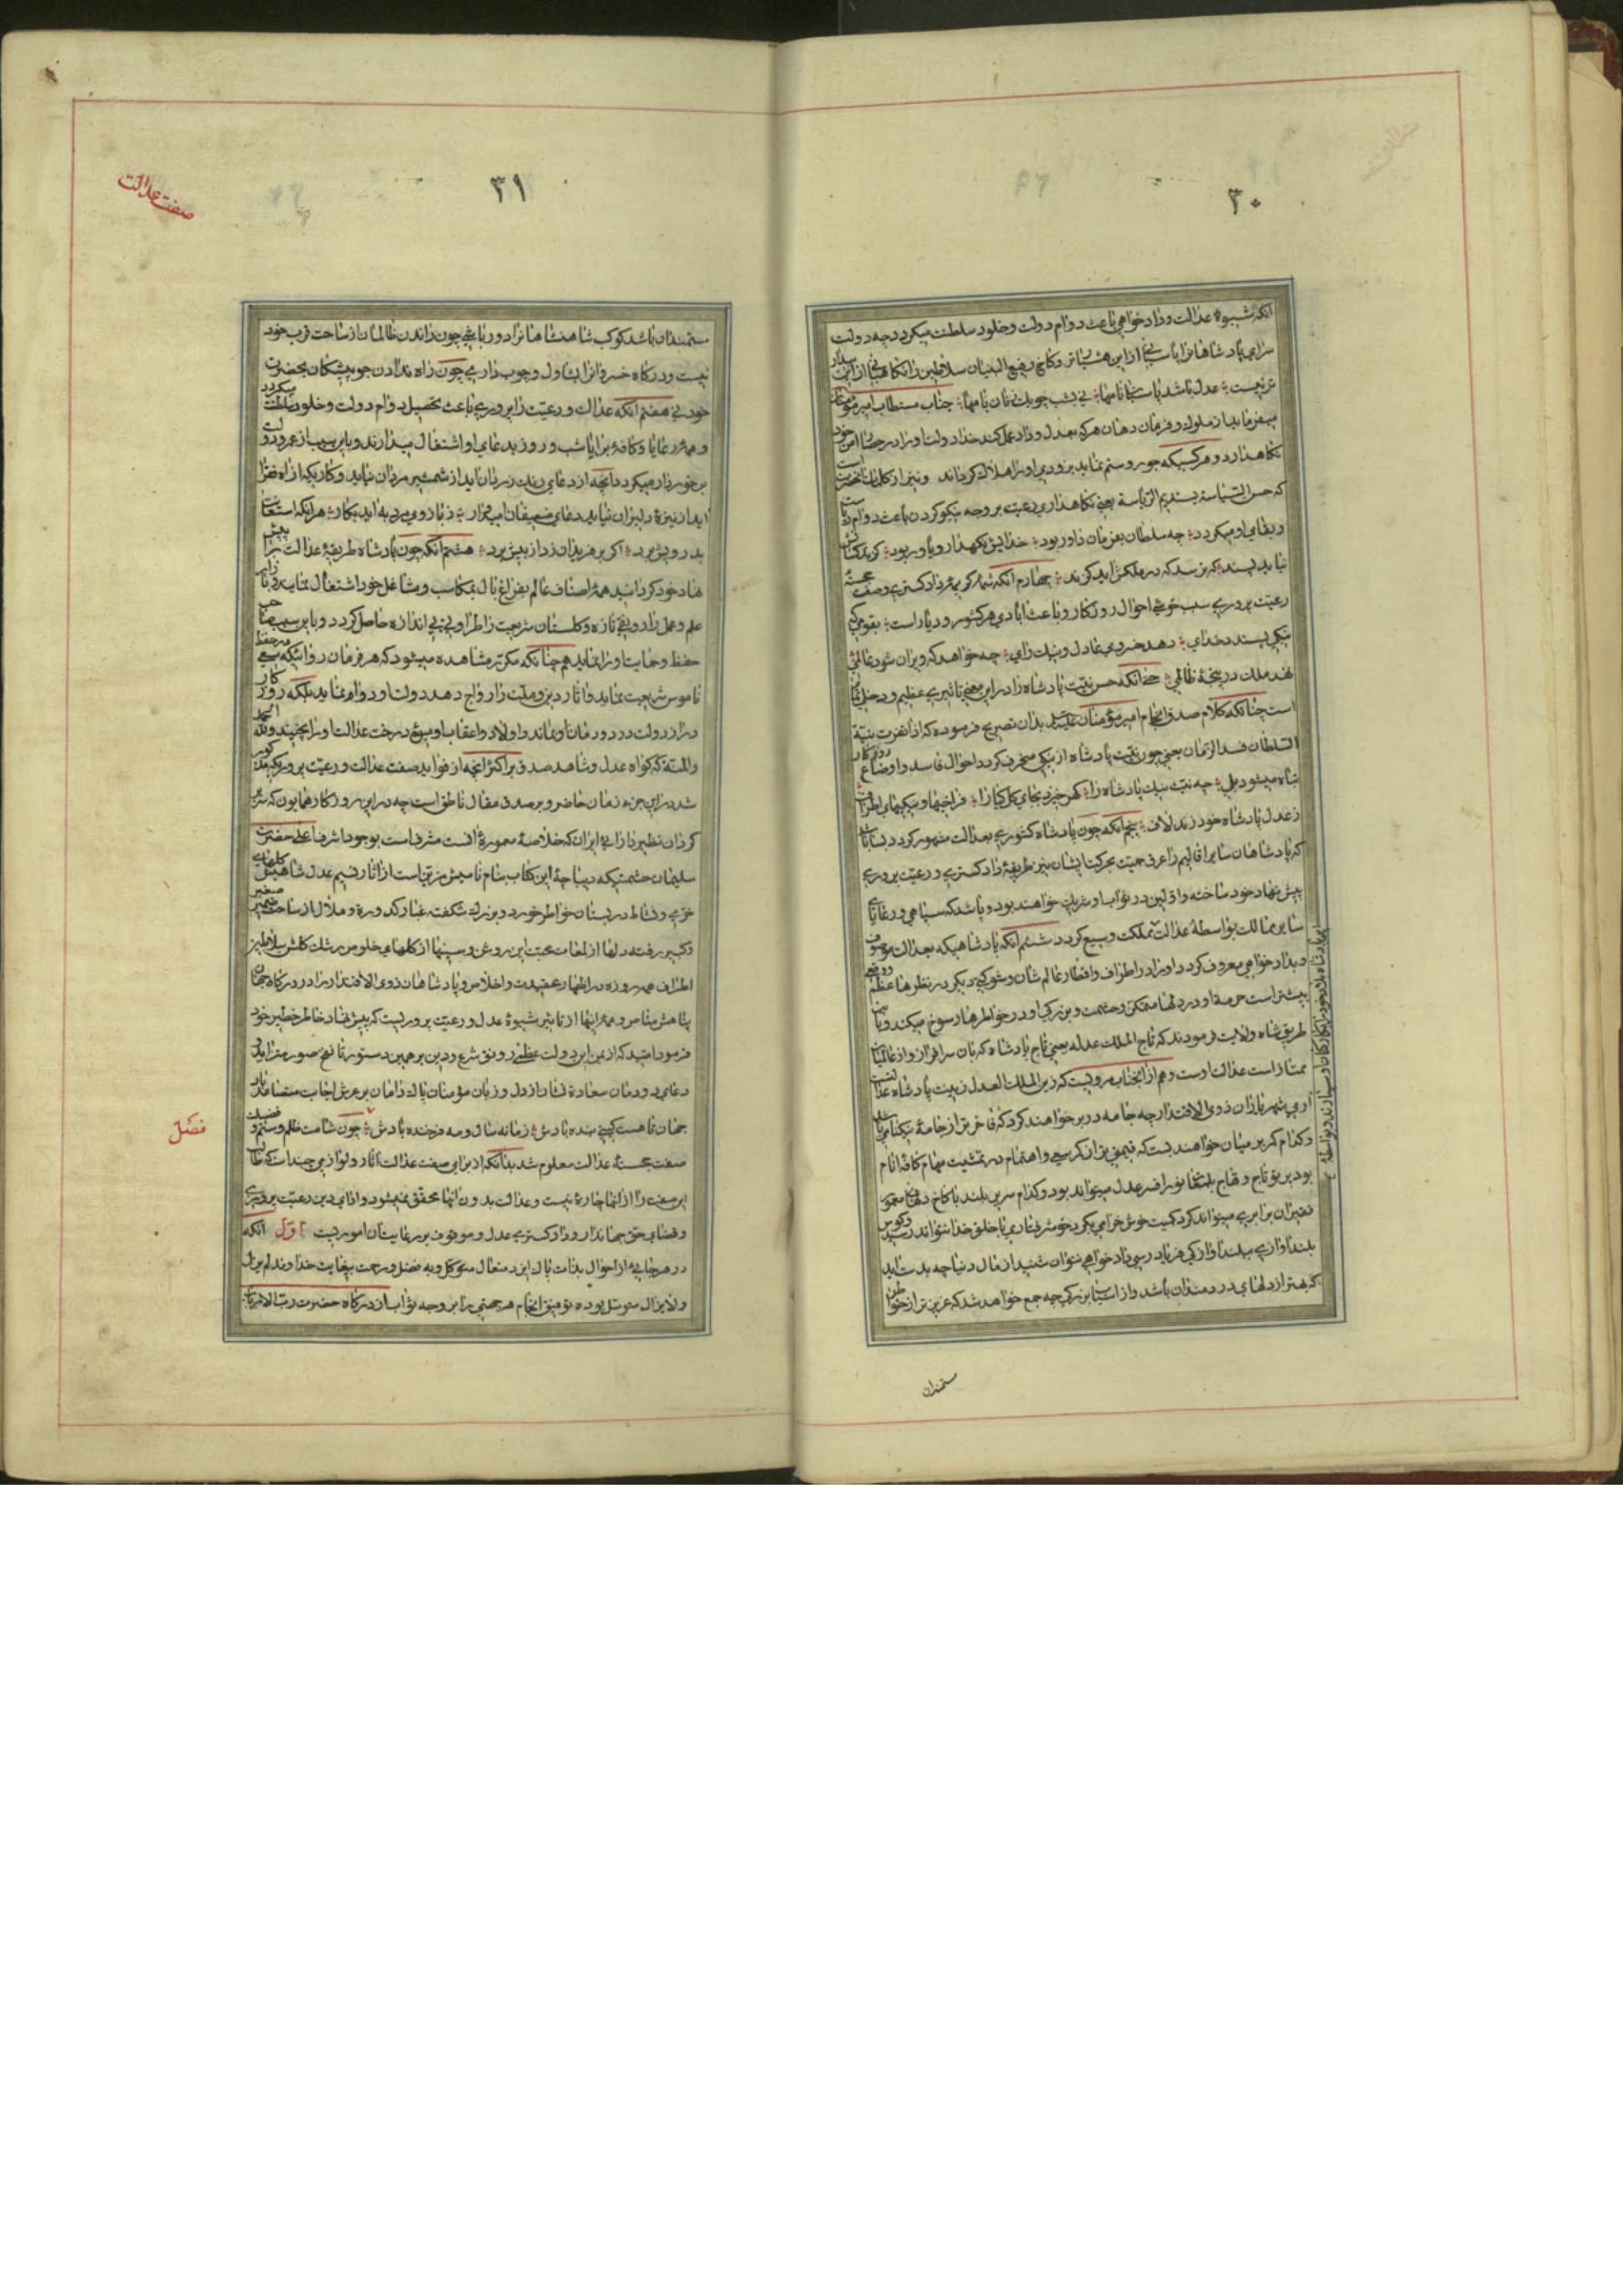 ۳۰
آنکه شیوهٔ عدالت و دادخواهی باعث دوام دولت و خلود سلطنت میگردد چه دولت
سرای پادشاهانرا پاسبانی از این هشیارتر و کاخ رفیع البنیان سلاطین را نگاهبانی از این
نیست عدل باشد پاسبان نامها نی بشب چوبک زنان بامها جناب مستطاب امیر مؤمنان
میفرماید از ملوک و فرمان دهان هر که بعدل و داد عمل کند خدا دولت او را در حصار امن خود
نگاهدارد و هر کسیکه جور و ستم نماید بزودی او را هلاک گرداند و نیز از کلمات آنحضرت است
که حسن السیاسة یستدیم الریاسة یعنی نگاهداری رعیت بر وجه نیکو کردن باعث دوام ریاست
و بقای او میگردد چه سلطان بفرمان داور بود خدایش نگهدار و یاور بود گزند کسانش
نیاید پسند که ترسد که در ملکش آید گزند چهارم آنکه شعار کریمهٔ دادگستری و صفت حسنهٔ
رعیت پروری سبب خوشی احوال روزگار و باعث آبادی هر کشور و دیار است بقومی که
نیکی پسندد خدای دهد خسروی عادل و نیک رای چه خواهد که ویران شود عالمی
نهد ملک در پنجهٔ ظالمی حتی آنکه حسن نیت پادشاه را در این معنی تاثیری عظیم و دخلی تمام
است چنانکه کلام صدق انجام امیر مؤمنان علیه السلام بدان تصریح فرموده که اذا تغیرت نیة
السلطان فسد الزمان یعنی چون نیت پادشاه از نیکی منحرف گردد احوال فاسد و اوضاع روزگار
تباه میشود بلی چه نیت نیک پادشاه را گهر خیزد بجای گل گیا را فراخیها و نیکیهای اطراف
ز عدل پادشاه خود زند لاف پنجم آنکه چون پادشاه کشوری بعدالت مشهور گردد بسا باشد
که پادشاهان سایر اقالیم را عرق حمیت بحرکت آید ایشان نیز طریقهٔ دادگستری و رعیت پروری
پیش نهاد خود ساخته و اولین در ثواب او شریک خواهند بود و باشد که سپاهی و رعایای
سایر ممالک بواسطهٔ عدالت مملکت وسیع گردد ششم آنکه پادشاهیکه بعدالت موصوف
و بدادخواهی معروف گردد او را در اطراف و اقطار عالم شان و شوکتی دیگر در نظرها عظم و وقعی
بیشتر است حرمت او در دلها متمکن و حشمت و بزرگی او در خواطرها رسوخ میکند و باین
طریق شاه ولایت فرمودند که تاج الملک عدله یعنی تاج پادشاه که بآن سرافراز و از عالمیان
ممتاز است عدالت اوست و هم از آنجناب مرویست که زین الملک العدل زینت پادشاه عدالتست
آری شهریاران ذوی الاقتدار چه جامه در بر خواهند کرد که فاخرتر از جامهٔ نیکنامی باشد
و کدام کمر بر میان خواهند بست که قیمتی تر از کمر سعی و اهتمام در تمشیت مهام کافهٔ انام
بود پرتو تاج و هاج بلمعان نور افسر عدل میتواند بود و کدام سریر بلند با کاخ دلهای معمور
فقیران برابری میتواند کرد کمیت خوش خرامی بگرد خوش رفتاری با خلق خدا نتواند رسید و کوس
بلند آوازه ای ببلند آوازگی فریاد رسی دادخواهی نتوان شنید از مال دنیا چه بدست آید
که بهتر از دلهای دردمندان باشد و از اسباب بزرگی چه جمع خواهد شد که عزیزتر از خواطر
ستمندان
صفت عدالت
۳۱
مستمندان باشد کوکب شاهنشاهانرا دورباشی چون راندن ظالمان از ساحت قرب خود
نیست و درگاه خسروانرا یساول و چوب داری چون راه ندادن جور پیشگان بحضرت
خود نی هفتم آنکه عدالت و رعیت پروری باعث تحصیل دوام دولت و خلود سلطنت میگردد
و همهٔ رعایا و کافهٔ برایا شب و روز بدعای او اشتغال میدارند و باین سبب از عمر و دولت
برخوردار میگردد آنچه از دعای زنان آید از شمشیر مردان نیاید و کاریکه از آه فقرا
آید از نیزهٔ دلیران نیاید دعای ضعیفان امیدوار ز بازوی مردی به آید بکار هر آنکه استعانت
بدرویش برد اگر بر فریدون زد از پیش برد هشتم آنکه چون پادشاه طریقهٔ عدالت را پیش
نهاد خود گرداند همهٔ اصناف عالم بفراغ بال بمکاسب و مشاغل خود اشتغال نمایند و بازار
علم و عمل را رونقی تازه و گلستان شریعت را طراوتی بی اندازه حاصل گردد و باین سبب صاحب شریعت
حفظ و حمایت او را نماید هم چنانکه مکرر مشاهده میشود که هر فرمان روائیکه سعی در حفظ
ناموس شریعت نماید و آثار دین و ملت را رواج دهد دولت او دوام نماید بلکه روزگار
دراز دولت در دودمان او بماند و اولاد و اعقاب او میوهٔ درخت عدالت او را بچینند و لله الحمد
والمنة که گواه عدل و شاهد صدق بر اکثر آنچه از فواید صفت عدالت و رعیت پروری مذکور
شد در این جزو زمان حاضر و بر صدق مقال ناطق است چه در این روزگار همایون که سریر
گردان نظیر دارائی ایران که خلاصهٔ معمورهٔ آنست مشرف است بوجود اشرف اعلی حضرت
سلیمان حشمتیکه دیباچهٔ این کتاب بنام نامیش مزینست از آثار نسیم عدل شاهیش گلهای
خرمی و نشاط در بستان خواطر خورد و بزرگ شکفته غبار کدورة و ملال از ساحت ضمیر صغیر
و کبیر رفته دلها از لمعات محبت این روشن و سینها از گلهای خلوص رشک گلشن سلاطین
اطراف همه روزه در اظهار عقیدت و اخلاص و پادشاهان ذوی الاقتدار را در درگاه جهان
پناهش مناص و همهٔ اینها از تاثیر شیوهٔ عدل و رعیت پروریست که پیش نهاد خاطر خطیر خود
فرموده امید که از یمن این دولت عظمی رونق شرع و دین بر همین دستور تا نفخ صور متزاید
دعای دودمان سعادة نشان از دل و زبان مؤمنان پاک دامان بر عرش اجابت متصاعد باد
جهان تا هست گیتی بنده بادش زمانه سال و مه فرخنده بادش چون شامت ظلم و ستم و فضیلت
صفت حسنهٔ عدالت معلوم شد بدانکه از برای صفت عدالت آثار و لوازمی چند است که طالب
این صفت را از آنها چارهٔ نیست و عدالت بدون آنها محقق نمیشود و ادای دین رعیت پروری
و قضای حق جهانداری و دادگستری عدل و موقوف بر رعایت آن اموریست اول آنکه
در هر حالی از احوال بذات پاک ایزد متعال متوکل و به فضل و رحمت بیغایت خداوند لم یزل
ولایزال متوسل بوده توفیق انجام هر مهمی را بر وجه ثواب از درگاه حضرت رب الارباب
فصل